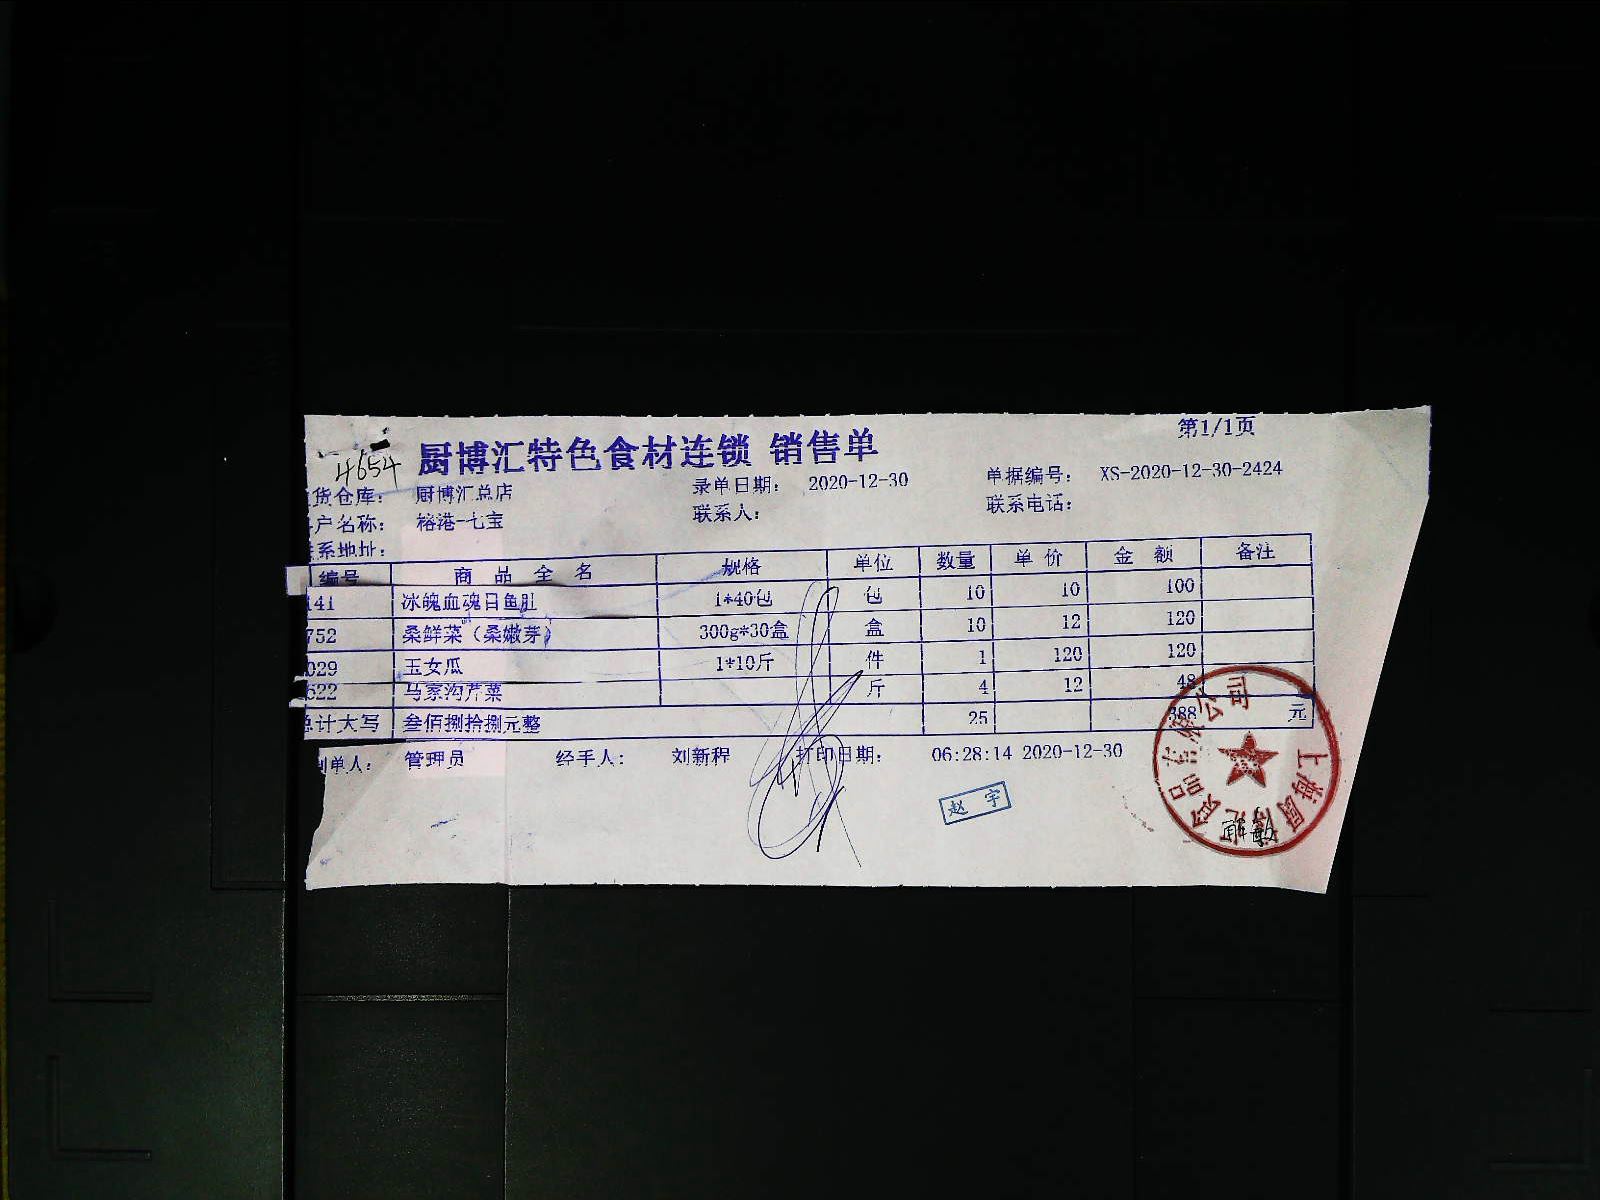 第1/1页
4654 厨博汇特色食材连锁 销售单
货仓库: 厨博汇总店 录单日期: 2020-12-30 单据编号: XS-2020-12-30-2424
户名称: 榕港-七宝 联系人: 联系电话:
系地址:
编号 商品全名 规格 单位 数量 单价 金额 备注
141 冰魄血魂目鱼肚 1*40包 包 10 10 100
752 桑鲜菜（桑嫩芽） 300g*30盒 盒 10 12 120
029 玉女瓜 1*10斤 件 1 120 120
522 马家沟芹菜 斤 4 12 48
总计大写 叁佰捌拾捌元整 25 388 元
制单人: 管理员 经手人: 刘新程 打印日期: 06:28:14 2020-12-30
赵宇
上海厨博汇食品有限公司